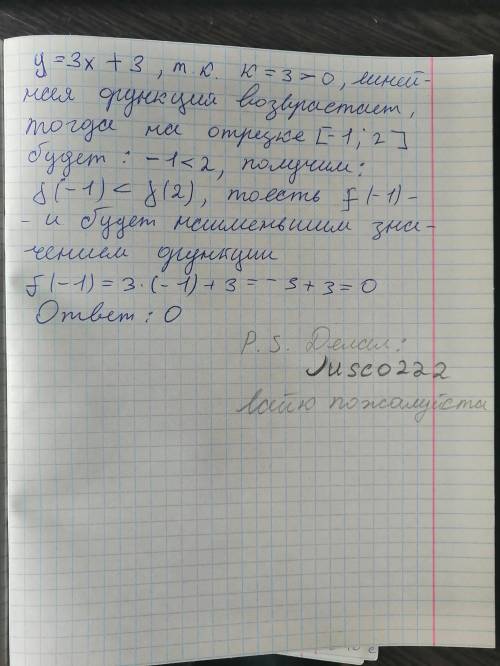 y=3x+3, т.к. к=3>0, линей-
ная функция возврастает,
тогда на отрезке [-1; 2]
будет: -1<2, получим:
f(-1) < f(2), тоесть f(-1)-
- и будет наименьшим зна-
чением функции
f(-1) = 3·(-1)+3=-3+3=0
Ответ: 0
P.S. Делал:
Jusco222
лайк пожалуйста